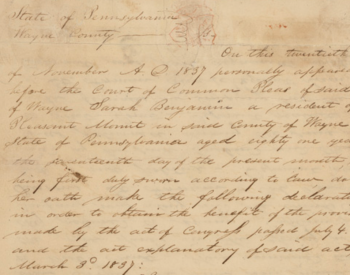 State of Pennsylvania
Wayne County
On this twentieth
of November A D 1837 personally appeared
before the Court of Common Pleas of said
of Wayne Sarah Benjamin a resident of
Pleasant Mount in said County of Wayne
State of Pennsylvania aged eighty one years
the seventeenth day of the present month
being first duly sworn according to law do
her oath make the following declarat
in order to obtain the benefit of the provi
made by the act of Congress passed July 4.
and the act explanatory of said act
March 3d 1837: